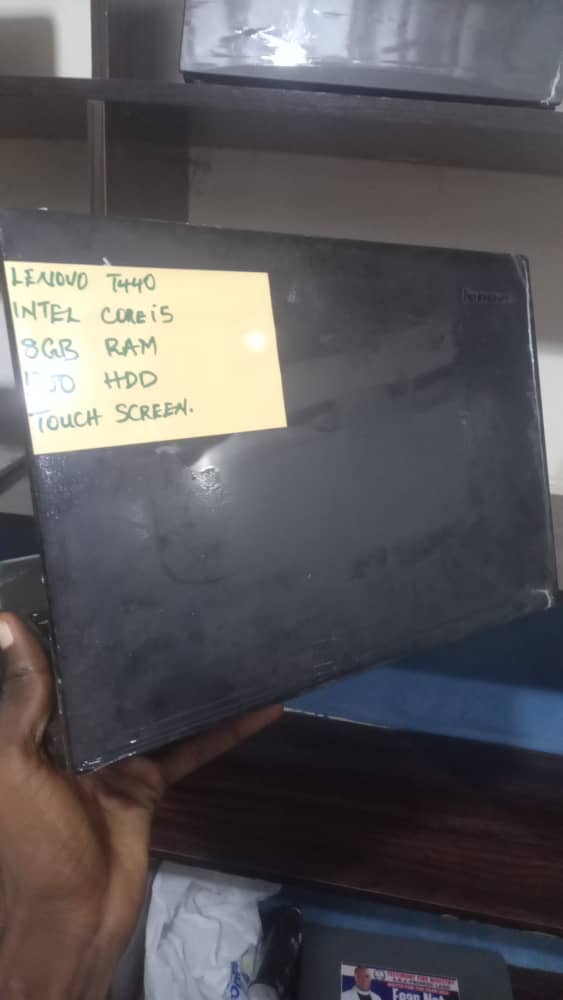 LENOVO T440
INTEL CORE i5
8GB RAM
HDD
TOUCH SCREEN.
lenovo